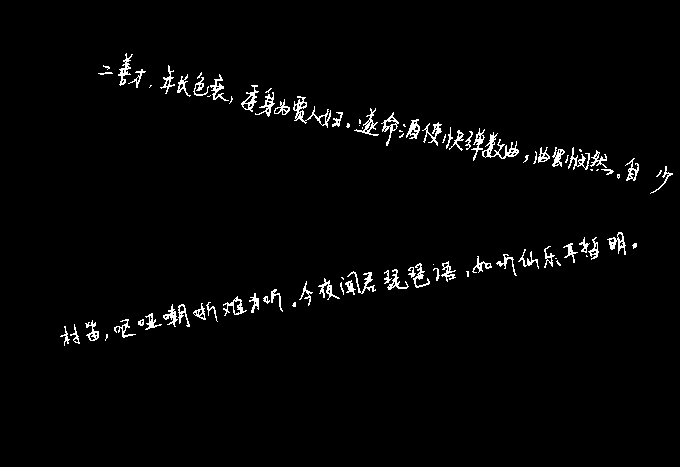 二善才，年长色衰，委身为贾人妇。遂命酒使快弹数曲，曲罢悯然。自少
村笛，呕哑嘲哳难为听。今夜闻君琵琶语，如听仙乐耳暂明。